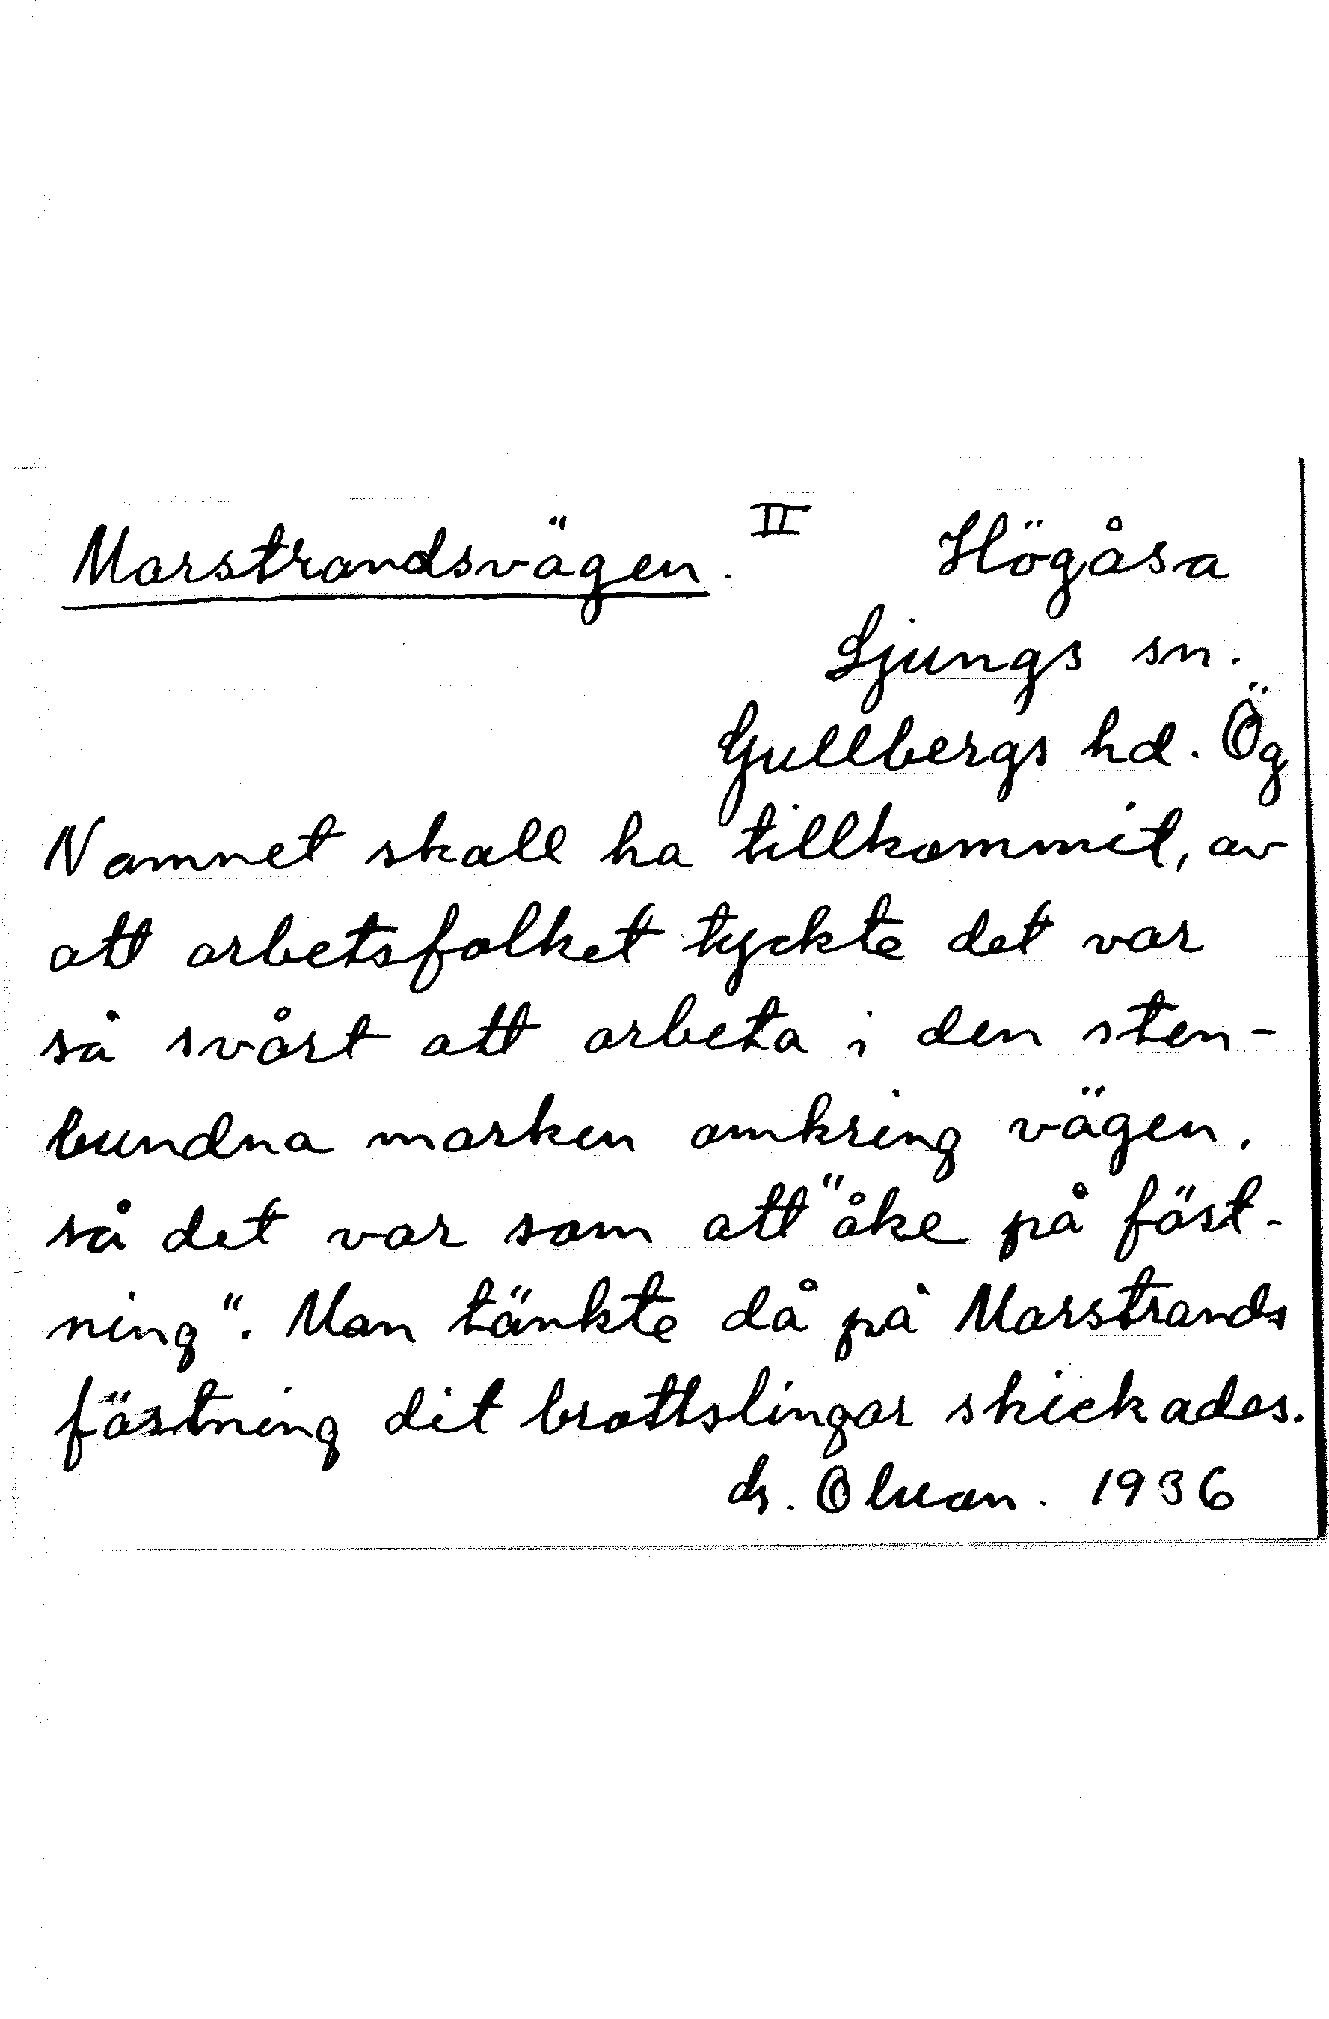 Marstrandsvägen. II Högåsa
Ljungs sn.
Gullbergs hd. Ög
Namnet skall ha tillkommit, av
att arbetsfolket tyckte det var
så svårt att arbeta i den sten-
bundna marken omkring vägen,
så det var som att "åke på fäst-
ning". Man tänkte då på Marstrands
fästning dit brottslingar skickades.
1936